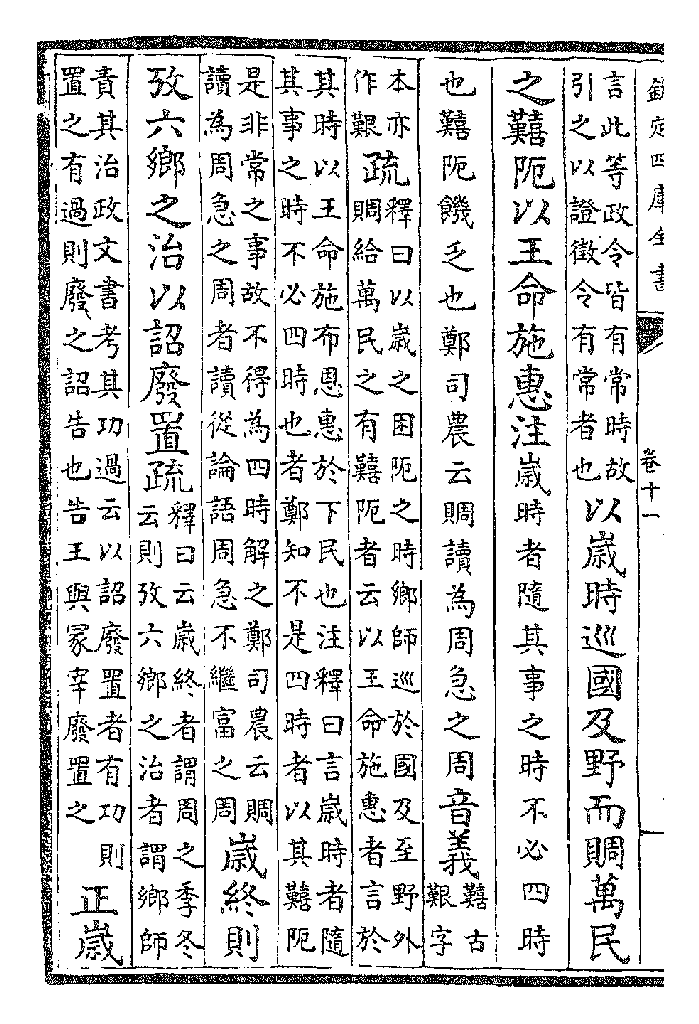 欽定四庫全書
卷十一
言此等政令皆有常時故
引之以證徵令有常者也
以歲時巡國及野而賙萬民
之囏阨以王命施惠注歲時者隨其事之時不必四時
也囏阨饑乏也鄭司農云賙讀為周急之周音義
囏古
艱字
本亦
作艱
疏
釋曰以歲之困阨之時鄉師巡於國及至野外
賙給萬民之有囏阨者云以王命施惠者言於
其時以王命施布恩惠於下民也注釋曰言歲時者隨
其事之時不必四時也者鄭知不是四時者以其囏阨
是非常之事故不得為四時解之鄭司農云賙
讀為周急之周者讀從論語周急不繼富之周
歲終則
攷六鄉之治以詔廢置疏
釋曰云歲終者謂周之季冬
云則攷六鄉之治者謂鄉師
責其治政文書考其功過云以詔廢置者有功則
置之有過則廢之詔告也告王與冢宰廢置之
正歲